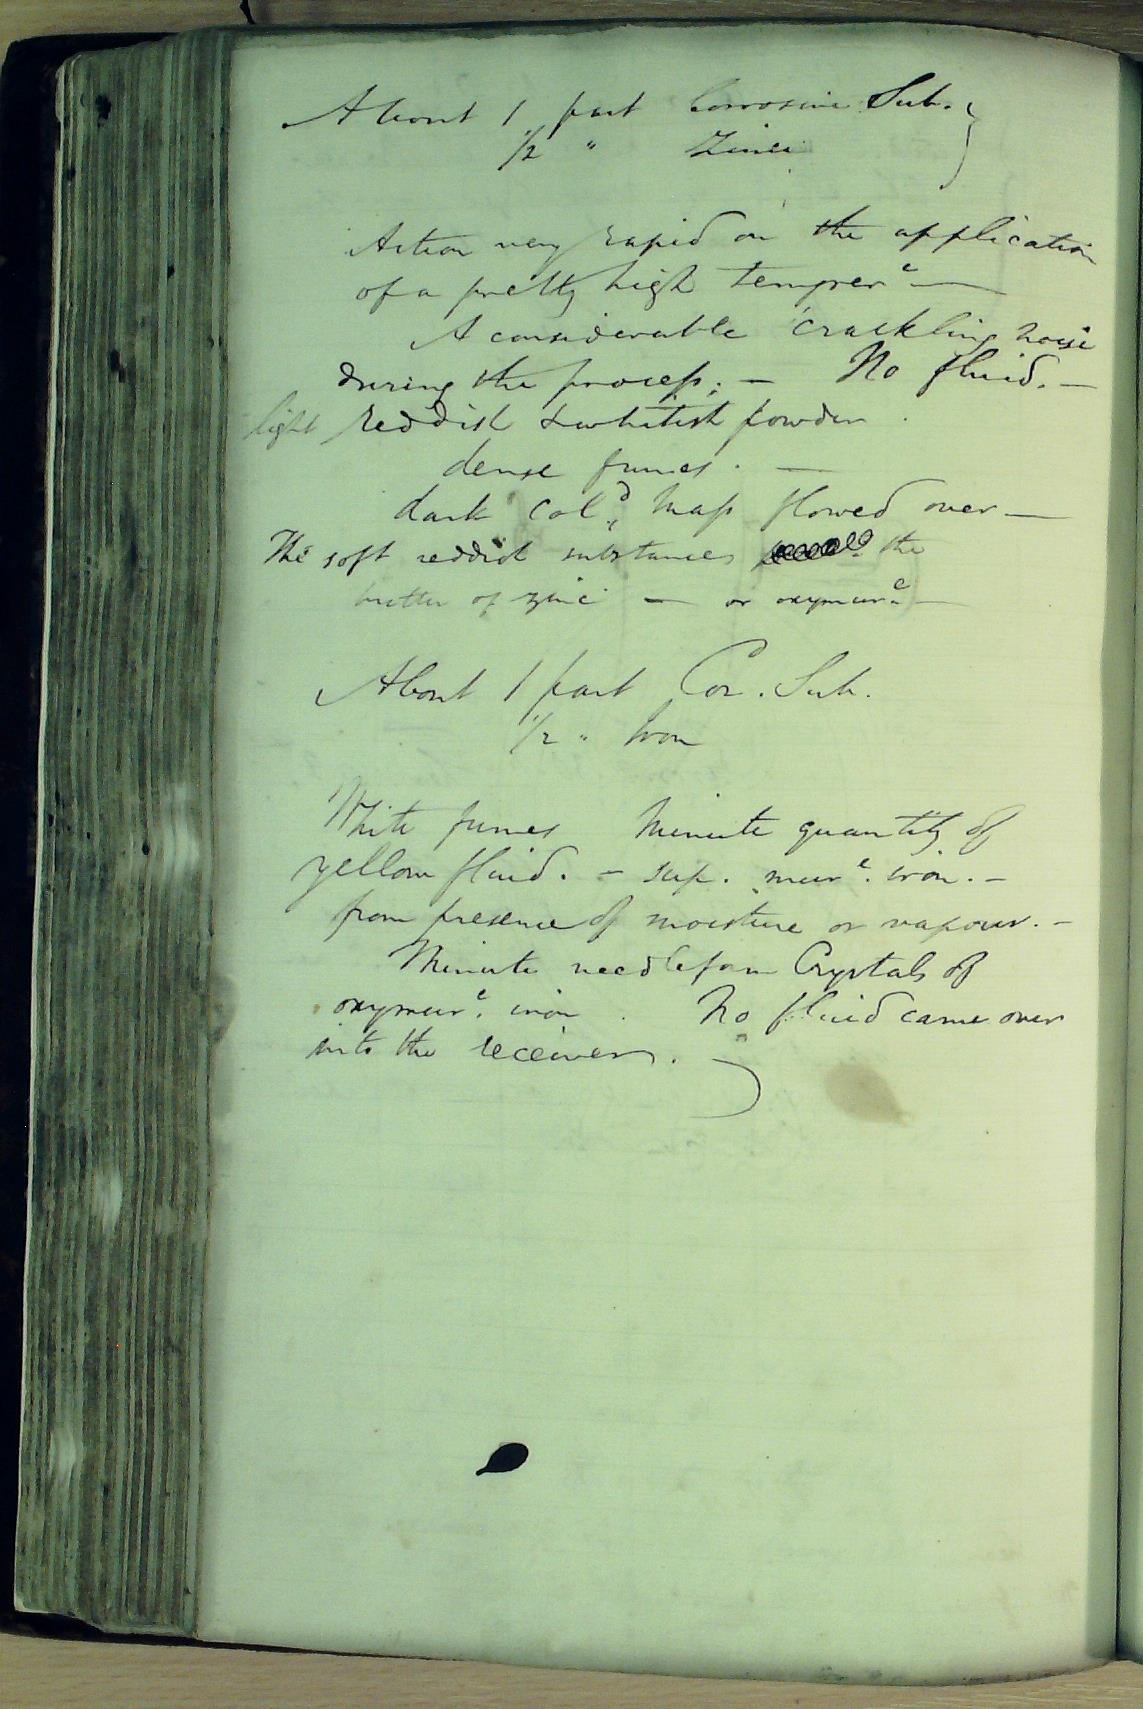 About 1 part Corrosive Sub.
1/2 " Zinc
Action very rapid on the application
of a pretty high temperᵉ —
A considerable crackling noise
during the process; — No fluid. —
light reddish & whitish powder
dense fumes. —
dark colᵈ, mass flowed over —
The soft reddish substances the
butter of zinc — or oxymurᵉ —
About 1 part Cor. Sub.
1/2 " Iron
White fumes Minute quantity of
yellow fluid. — sup. murᵉ. iron. —
from presence of moisture or vapour. —
Minute needleform Crystals of
oxymurᵉ. iron. No fluid came over
into the receiver. —